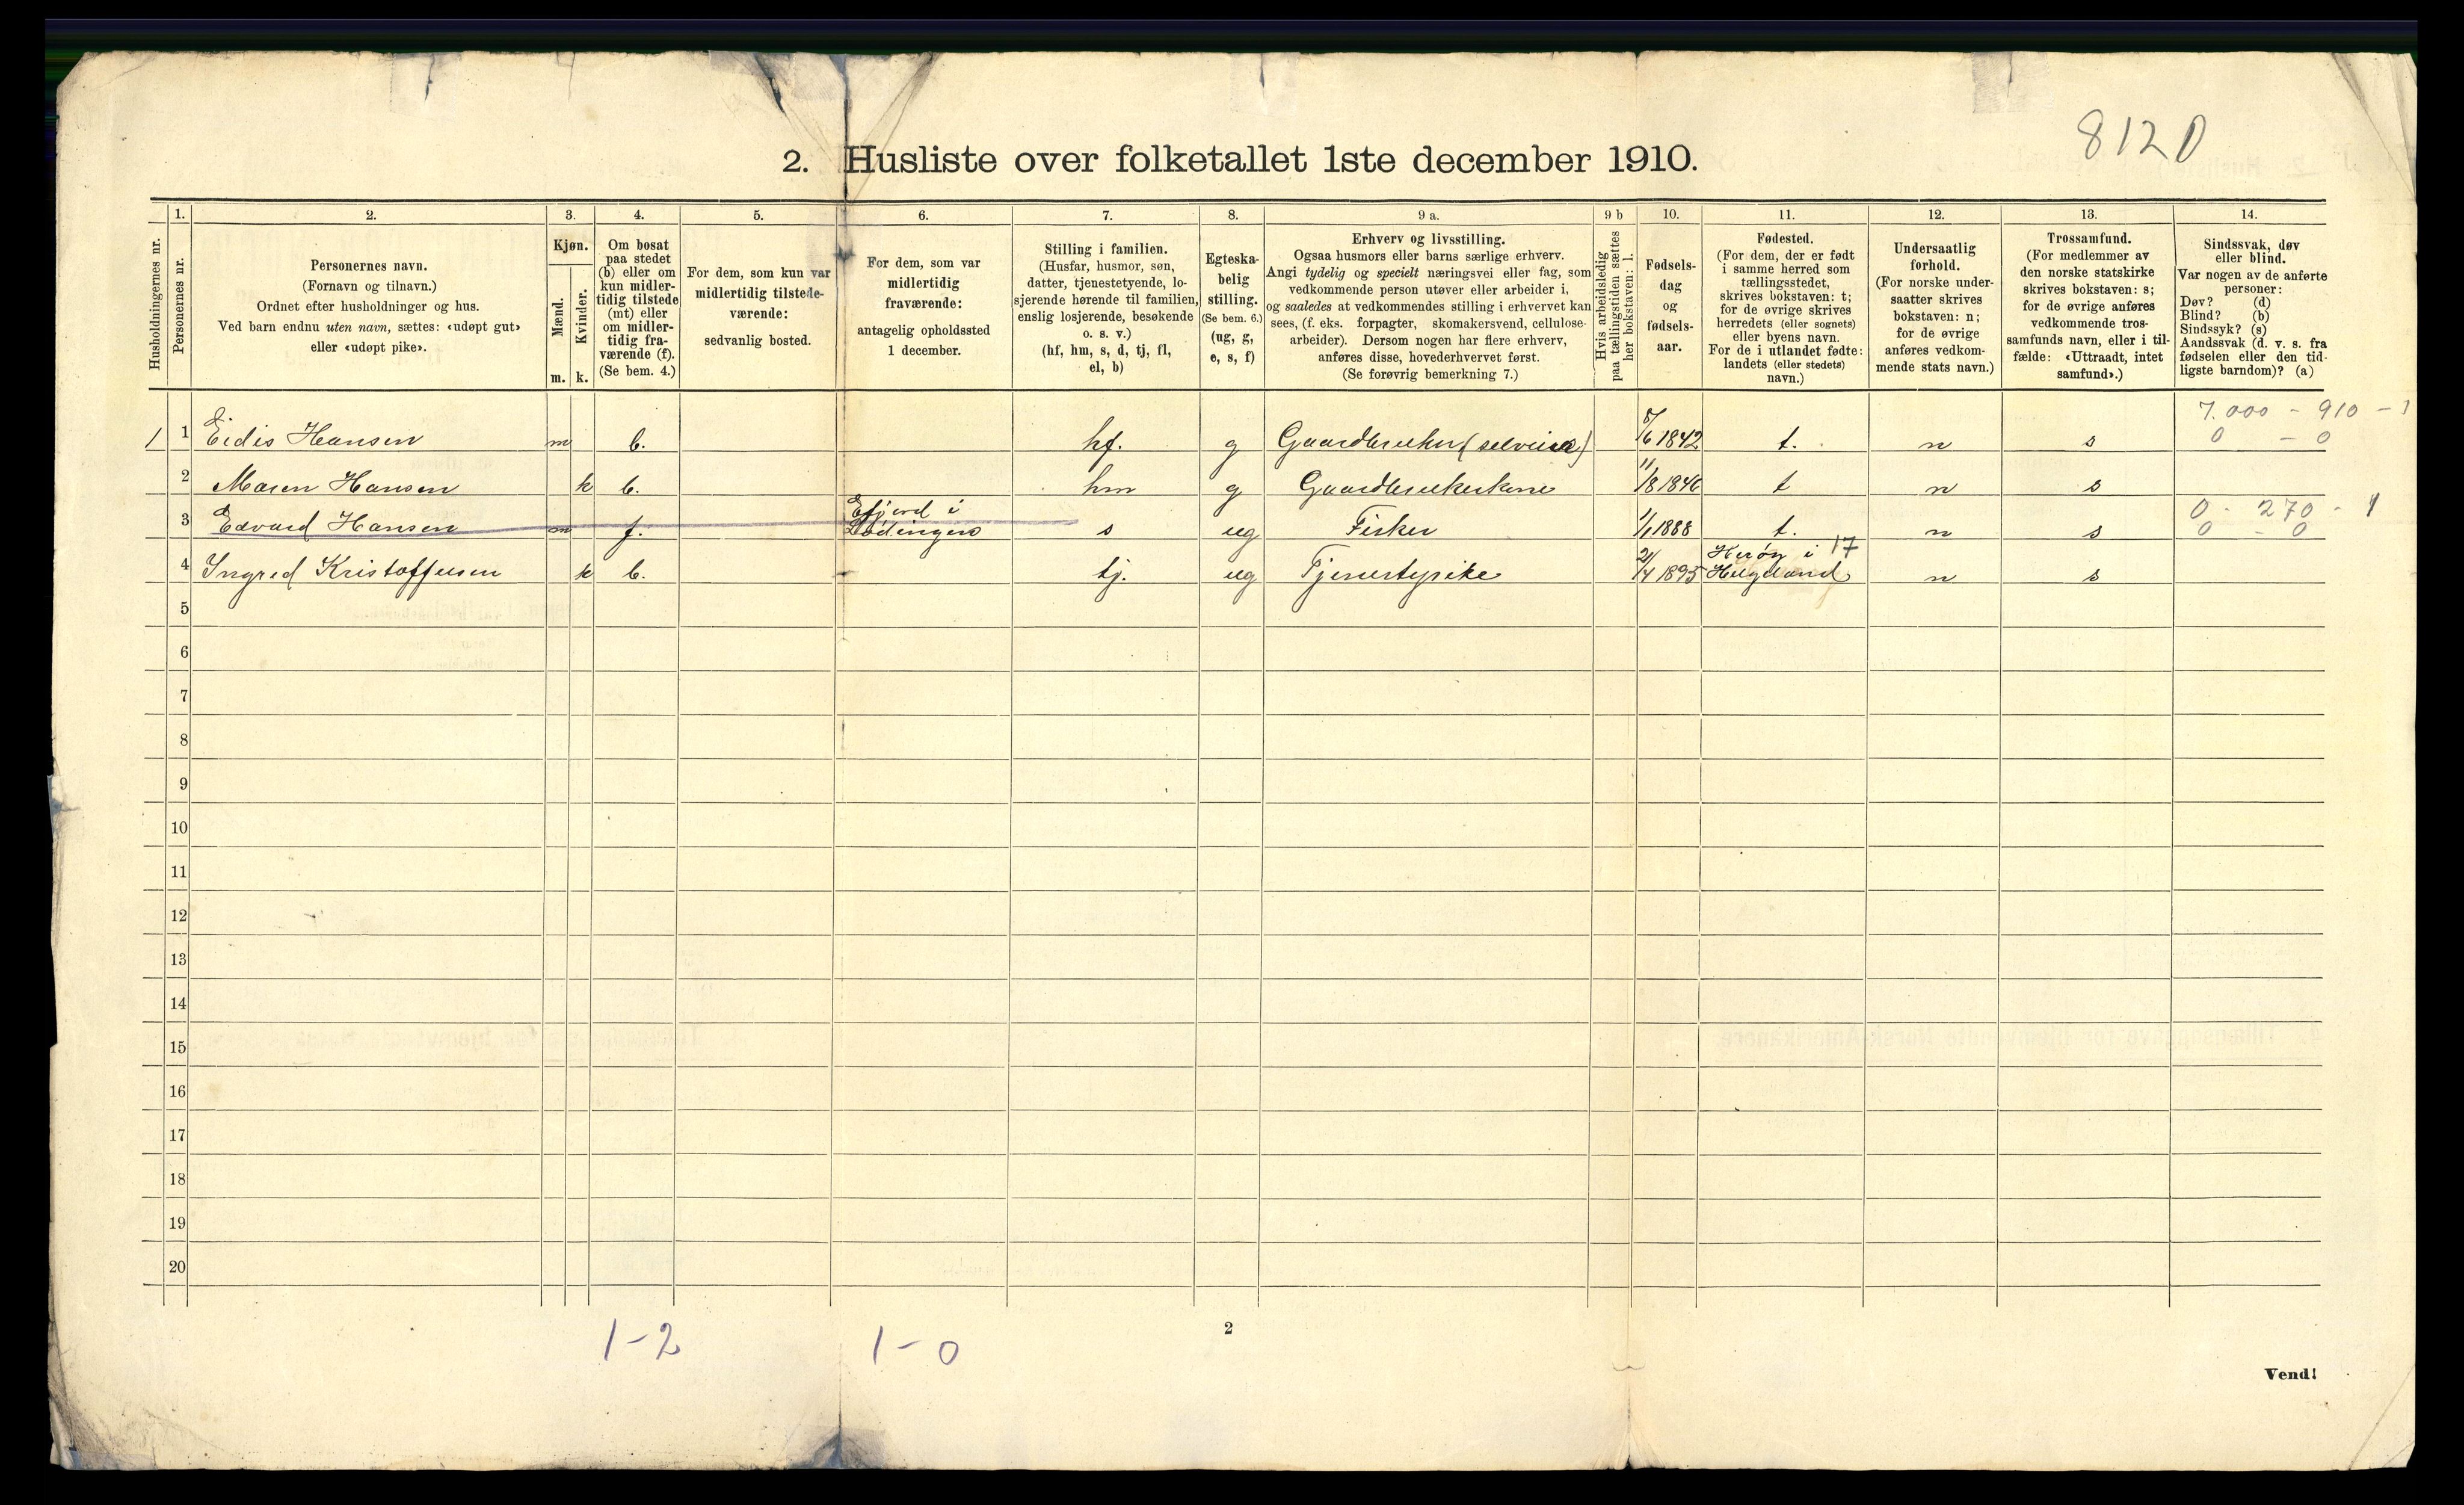 8120
2. Husliste over folketallet 1ste december 1910.
1. 2. 3. 4. 5. 6. 7. 8. 9 a. 9 b 10. 11. 12. 13. 14.
Husholdningernes nr.
Personernes nr.
Personernes navn.
(Fornavn og tilnavn.)
Ordnet efter husholdninger og hus.
Ved barn endnu uten navn, sættes: «udøpt gut»
eller «udøpt pike».
Kjøn.
Mænd.
Kvinder.
m. k.
Om bosat
paa stedet
(b) eller om
kun midler-
tidig tilstede
(mt) eller
om midler-
tidig fra-
værende (f).
(Se bem. 4.)
For dem, som kun var
midlertidig tilstede-
værende:
sedvanlig bosted.
For dem, som var
midlertidig
fraværende:
antagelig opholdssted
1 december.
Stilling i familien.
(Husfar, husmor, søn,
datter, tjenestetyende, lo-
sjerende hørende til familien,
enslig losjerende, besøkende
o. s. v.)
(hf, hm, s, d, tj, fl,
el, b)
Egteska-
belig
stilling.
(Se bem. 6.)
(ug, g,
e, s, f)
Erhverv og livsstilling.
Ogsaa husmors eller barns særlige erhverv.
Angi tydelig og specielt næringsvei eller fag, som
vedkommende person utøver eller arbeider i,
og saaledes at vedkommendes stilling i erhvervet kan
sees, (f. eks. forpagter, skomakersvend, cellulose-
arbeider). Dersom nogen har flere erhverv,
anføres disse, hovederhvervet først.
(Se forøvrig bemerkning 7.)
Hvis arbeidsledig
paa tællingstiden sættes
her bokstaven: l.
Fødsels-
dag
og
fødsels-
aar.
Fødested.
(For dem, der er født
i samme herred som
tællingsstedet,
skrives bokstaven: t;
for de øvrige skrives
herredets (eller sognets)
eller byens navn.
For de i utlandet fødte:
landets (eller stedets)
navn.)
Undersaatlig
forhold.
(For norske under-
saatter skrives
bokstaven: n;
for de øvrige
anføres vedkom-
mende stats navn.)
Trossamfund.
(For medlemmer av
den norske statskirke
skrives bokstaven: s;
for de øvrige anføres
vedkommende tros-
samfunds navn, eller i til-
fælde: «Uttraadt, intet
samfund».)
Sindssvak, døv
eller blind.
Var nogen av de anførte
personer:
Døv? (d)
Blind? (b)
Sindssyk? (s)
Aandssvak (d. v. s. fra
fødselen eller den tid-
ligste barndom)? (a)
7.000 - 910 - 1
1 1 Eidis Hansen m b. hf. g Gaardbruker (selveier) 5/6 1842 t. n s 0 - 0
2 Maren Hansen k b. hm g Gaardbrukerkone 11/8 1846 t n s
Efjord i 0 - 270 - 1
3 Edvard Hansen m f. Lødingen s ug Fisker 1/1 1888 t. n s 0 - 0
Herøy i 17
4 Ingred Kristoffersen k b. tj. ug Tjenestepike 21/4 1895 Helgeland n s
5
6
7
8
9
10
11
12
13
14
15
16
17
18
19
20
1-2 1-0
2
Vend!